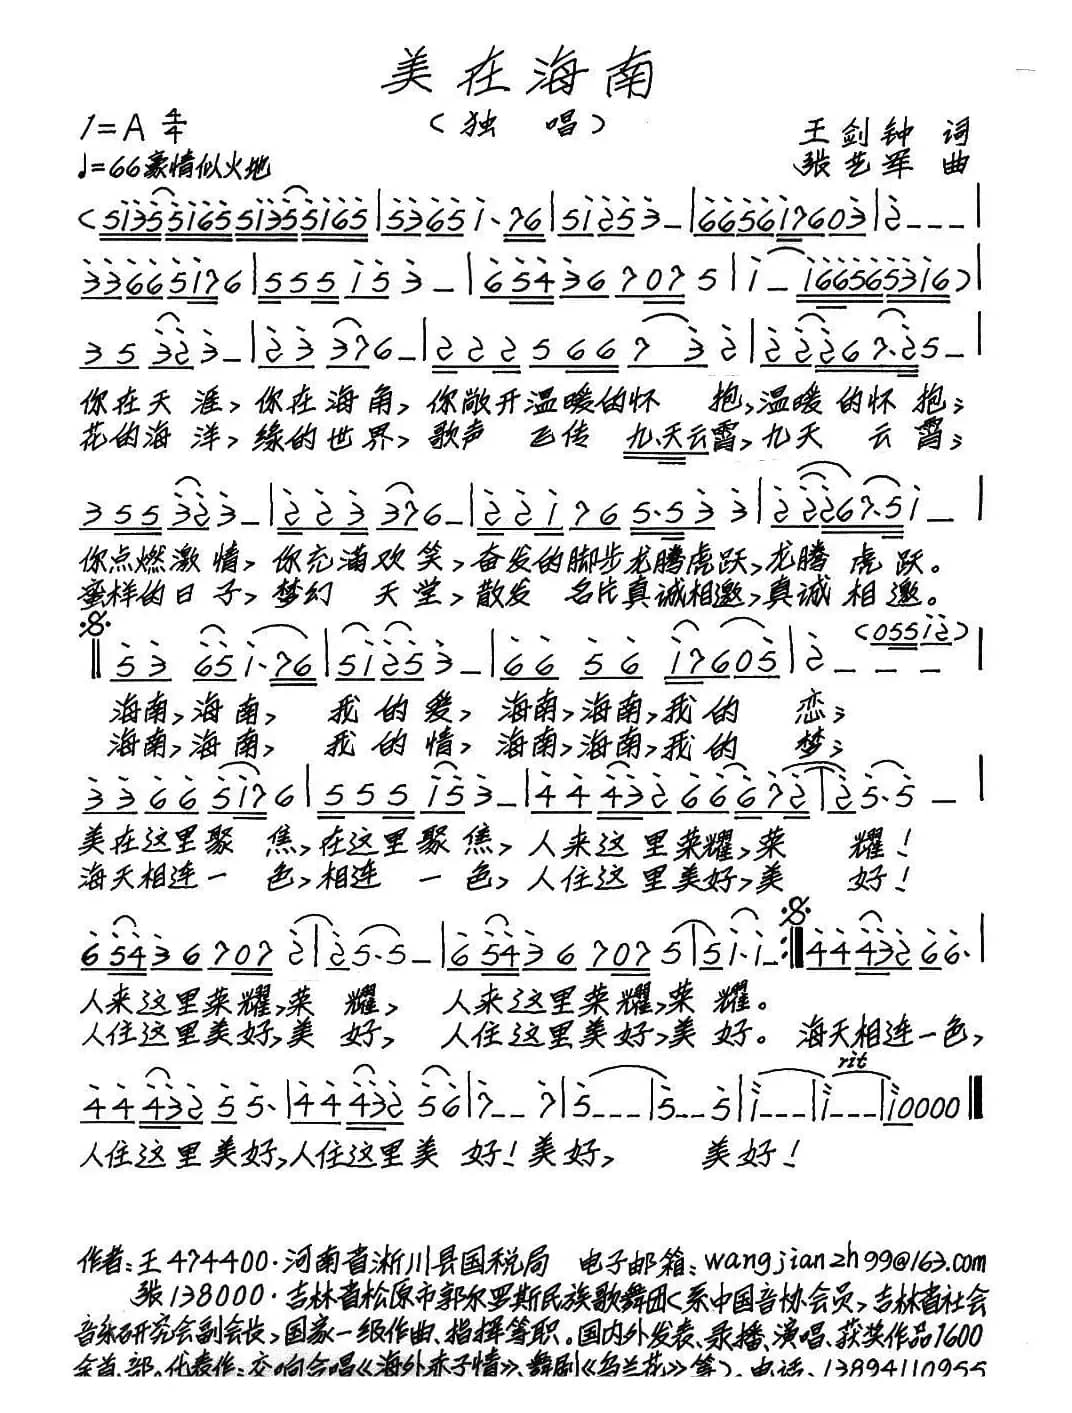 美在海南
(独 唱)
1=A 4/4
王剑钟 词
♩=66豪情似火地
张艺军 曲
(5135 5165 5135 5165|5365 1·76|51253-|665617603|2---|
33665176|555153-|65436 7075|1-1665653 16)|
35323-|233376-|222566 7 32|22267·25-|
你在天涯,你在海角,你敞开温暖的怀 抱,温暖的怀抱;
花的海洋,缘的世界,歌声 飞传 九天云霄,九天 云霄;
355323-|223376-|221765·533|22267·51-|
你点燃激情,你充满欢笑,奋发的脚步龙腾虎跃,龙腾虎跃。
蜜样的日子,梦幻 天堂,散发 名片真诚相邀,真诚相邀。
(05512)
53 651·76|51253-|66 56 17605|2---|
海南,海南, 我的爱, 海南,海南,我的 恋;
海南,海南, 我的情, 海南,海南,我的 梦;
33665176|555153-|44432 66672|25·5-|
美在这里聚 焦,在这里聚焦,人来这里荣耀,荣 耀!
海天相连一 色,相连 一色,人住这里美好,美 好!
65436 7072|25·5-|65436 7075|51·1-:|44432 66·|
人来这里荣耀,荣 耀, 人来这里荣耀,荣 耀。
人住这里美好,美 好, 人住这里美好,美 好。 海天相连一色,
rit
44432 55·|44432 56|7--7|5---|5--5|1---|1---|10000‖
人住这里美好,人住这里美 好!美好, 美好!
作者:王 474400·河南省淅川县国税局 电子邮箱:wangjianzh99@163.com
张 138000·吉林省松原市郭尔罗斯民族歌舞团(系中国音协会员,吉林省社会
音乐研究会副会长,国家一级作曲、指挥等职。国内外发表、录播、演唱、获奖作品1600
余首、部。代表作:交响合唱《海外赤子情》、舞剧《乌兰花》等)。电话:13894110955